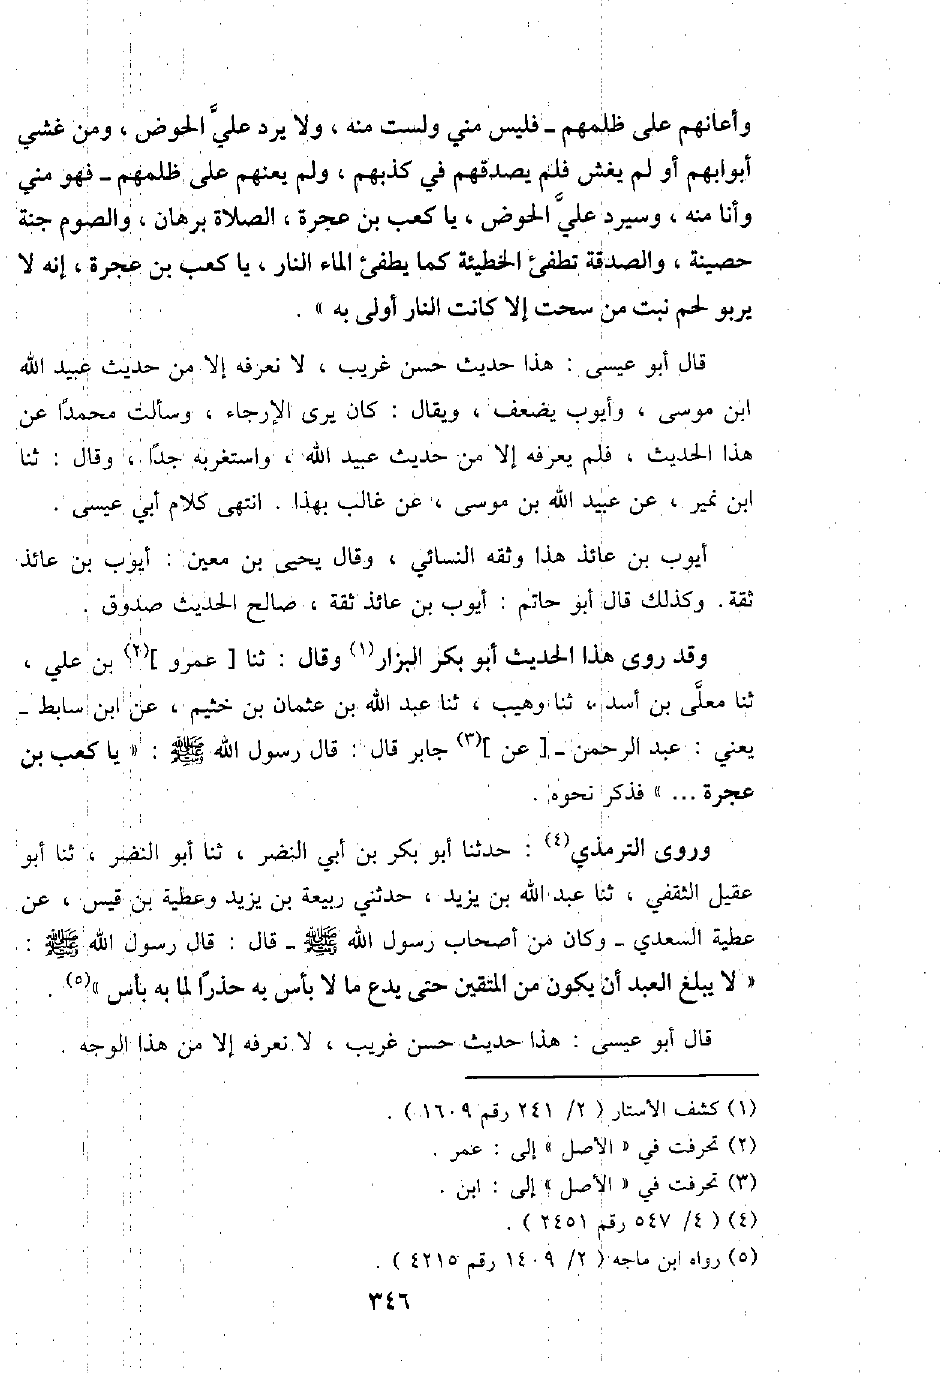 وأعانهم على ظلمهم ـ فليس مني ولست منه ، ولا يرد عليَّ الحوض ، ومن غشي
أبوابهم أو لم يغش فلم يصدقهم في كذبهم ، ولم يعنهم على ظلمهم ـ فهو مني
وأنا منه ، وسيرد عليَّ الحوض ، يا كعب بن عجرة ، الصلاة برهان ، والصوم جنة
حصينة ، والصدقة تطفئ الخطيئة كما يطفئ الماء النار ، يا كعب بن عجرة ، إنه لا
يربو لحم نبت من سحت إلا كانت النار أولى به » .
قال أبو عيسى : هذا حديث حسن غريب ، لا نعرفه إلا من حديث عبيد الله
ابن موسى ، وأيوب يضعف ، ويقال : كان يرى الإرجاء ، وسألت محمدًا عن
هذا الحديث ، فلم يعرفه إلا من حديث عبيد الله ، واستغربه جدًا ، وقال : ثنا
ابن نمير ، عن عبيد الله بن موسى ، عن غالب بهذا . انتهى كلام أبي عيسى .
أيوب بن عائذ هذا وثقه النسائي ، وقال يحيى بن معين : أيوب بن عائذ
ثقة . وكذلك قال أبو حاتم : أيوب بن عائذ ثقة ، صالح الحديث صدوق .
وقد روى هذا الحديث أبو بكر البزار(١) وقال : ثنا [ عمرو ](٢) بن علي ،
ثنا معلَّى بن أسد ، ثنا وهيب ، ثنا عبد الله بن عثمان بن خثيم ، عن ابن سابط ـ
يعني : عبد الرحمن ـ [ عن ](٣) جابر قال : قال رسول الله ﷺ : « يا كعب بن
عجرة ... » فذكر نحوه .
وروى الترمذي(٤) : حدثنا أبو بكر بن أبي النضر ، ثنا أبو النضر ، ثنا أبو
عقيل الثقفي ، ثنا عبد الله بن يزيد ، حدثني ربيعة بن يزيد وعطية بن قيس ، عن
عطية السعدي ـ وكان من أصحاب رسول الله ﷺ ـ قال : قال رسول الله ﷺ :
« لا يبلغ العبد أن يكون من المتقين حتى يدع ما لا بأس به حذرًا لما به بأس »(٥) .
قال أبو عيسى : هذا حديث حسن غريب ، لا نعرفه إلا من هذا الوجه .
(١) كشف الأستار ( ٢/ ٢٤١ رقم ١٦٠٩ ) .
(٢) تحرفت في « الأصل » إلى : عمر .
(٣) تحرفت في « الأصل » إلى : ابن .
(٤) ( ٤/ ٥٤٧ رقم ٢٤٥١ ) .
(٥) رواه ابن ماجه ( ٢/ ١٤٠٩ رقم ٤٢١٥ ) .
٣٤٦